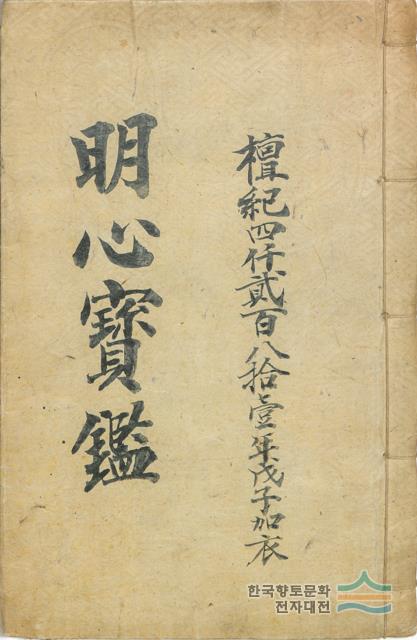 檀紀四仟貳百八拾壹年戊子加衣
明心寶鑑
한국향토문화
전자대전